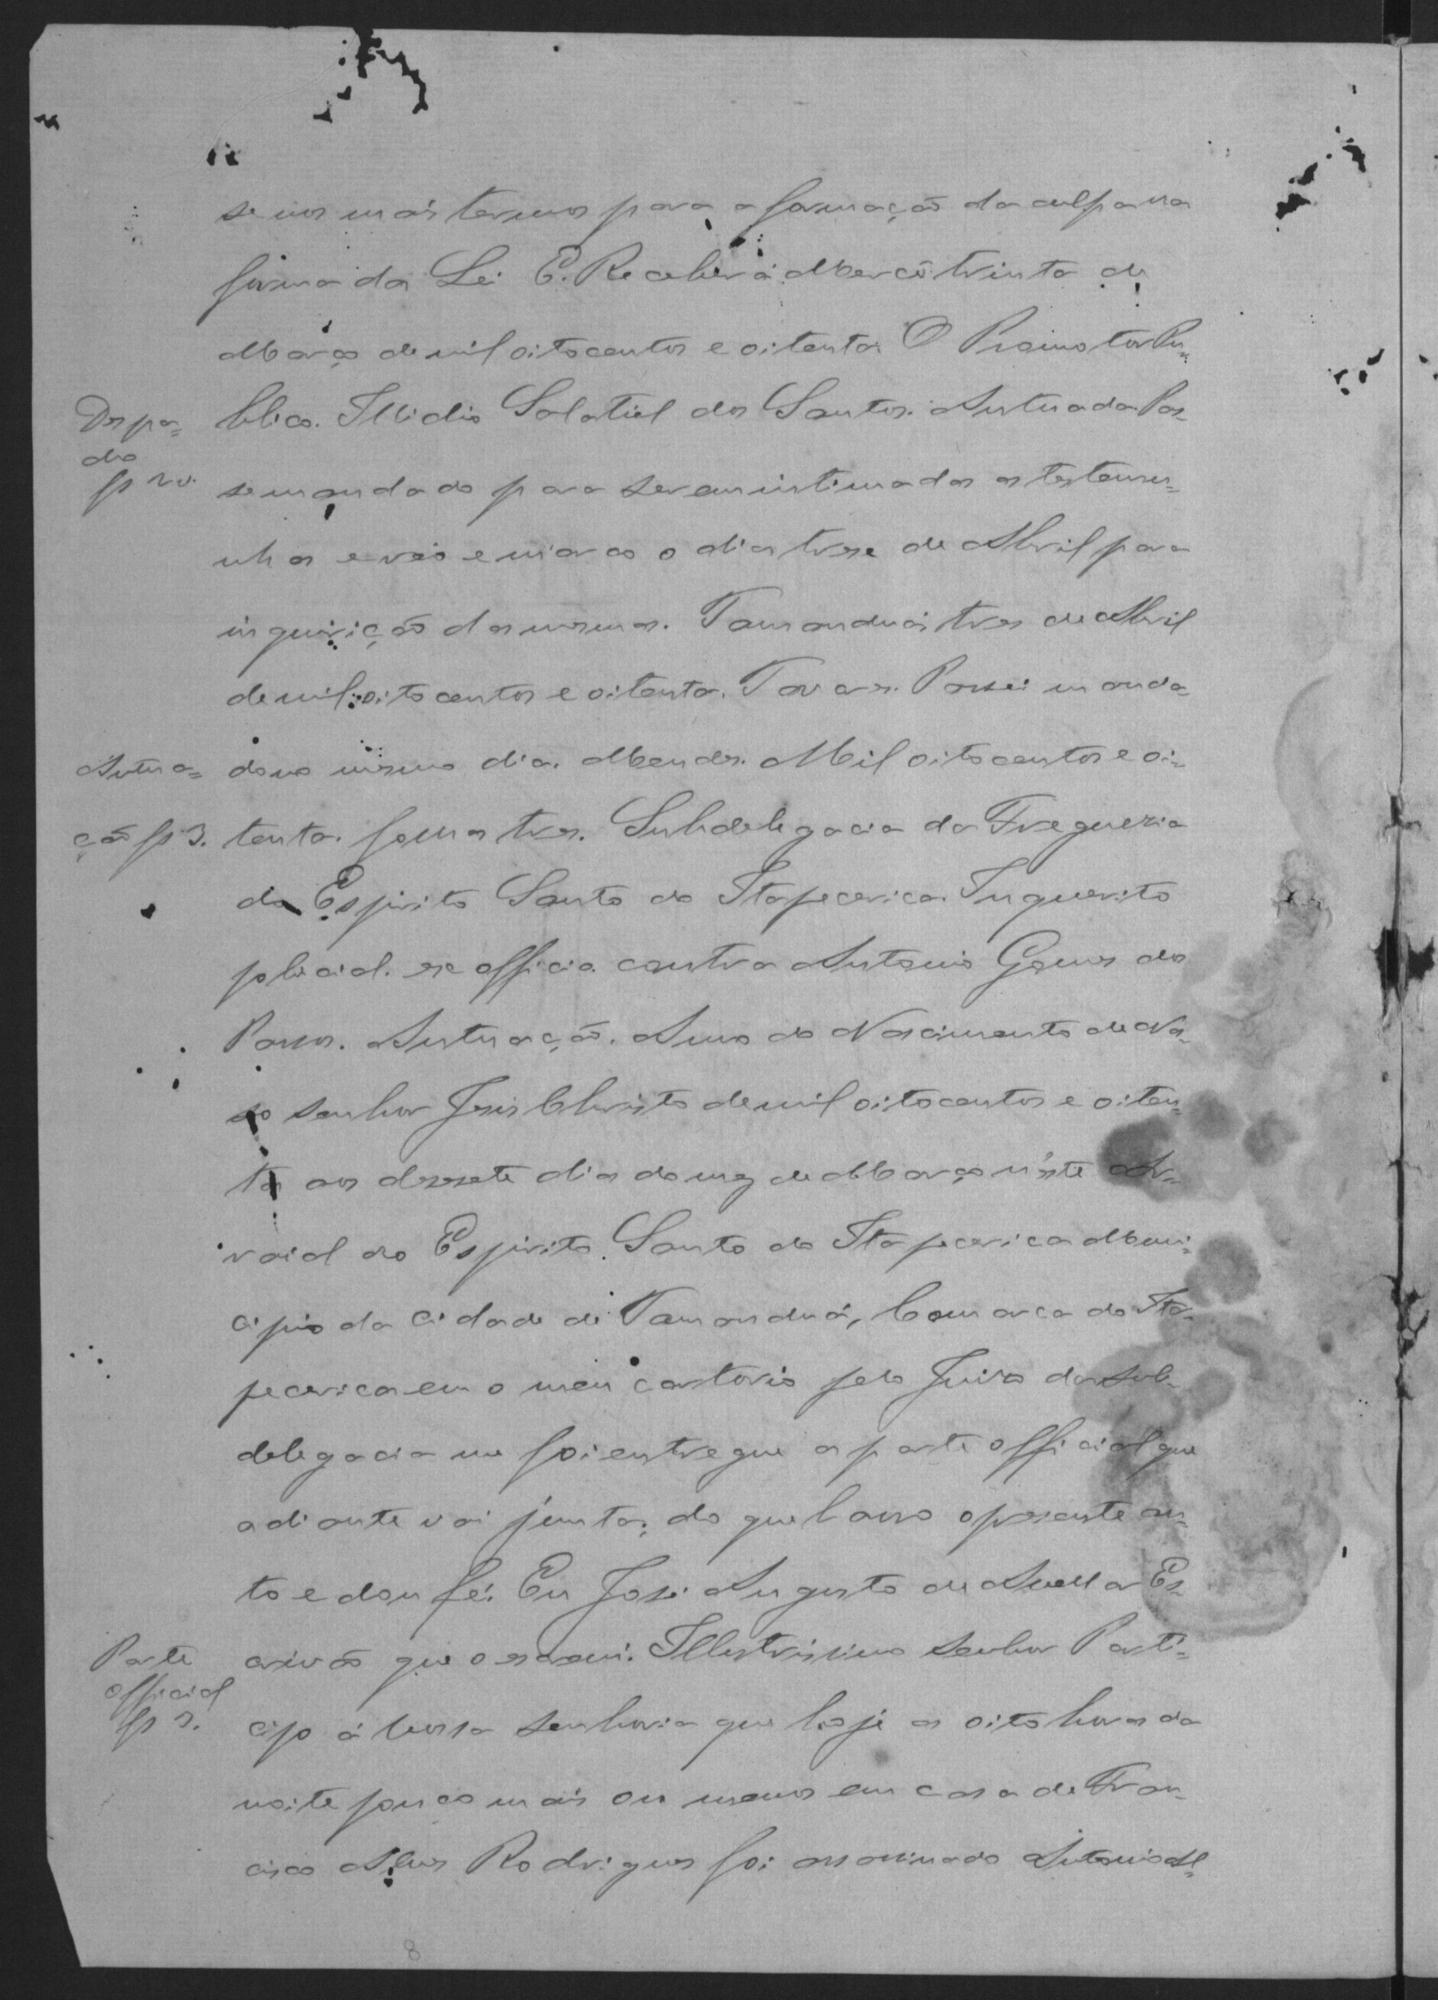 se nos mais termos para a formação da culpa na
forma da Lei E. Receberá Mercê trinta de
Março de mil oitocentos e oitenta O Promotor Pu=
Despa= blico. Illidio Salatiel dos Santos. Autuada Pas=
cho
fs 2 v. se mandado para serem intimadas as testemu=
nhas e réo e marco o dia treze de Abril para
inquirição das mesmas. Tamanduá tres de Abril
de mil oitocentos e oitenta. Tavares. Passei manda=
Autua= do no mesmo dia. Mendes. Mil oitocentos e oi=
ção fs 3. tenta. folhas tres. Subdelegacia da Freguezia
do Espirito Santo do Itapecerica. Inquerito
policial ex officio contra Antonio Gomes dos
Passos. Autuação. Anno do Nascimento de Nos=
so Senhor Jesus Christo de mil oitocentos e oiten=
ta aos desesete dias do mez de Março n'este Ar=
raial do Espirito Santo do Itapecerica Muni=
cipio da Cidade de Tamanduá, Comarca do Ita=
pecerica em o meu cartorio pelo Juizo da Sub=
delegacia me foi entregue a parte official que
adiante vai junta; do que lavro o presente au=
to e dou fé. Eu José Augusto de Avellar Es=
Parte crivão que o escrevi. Illustrissimo Senhor Parti=
official
fs 3. cipo á Vossa Senhoria que hoje as oito horas da
noite pouco mais ou menos em casa de Fran=
cisco Alves Rodrigues foi assassinado Antonio Al=
8